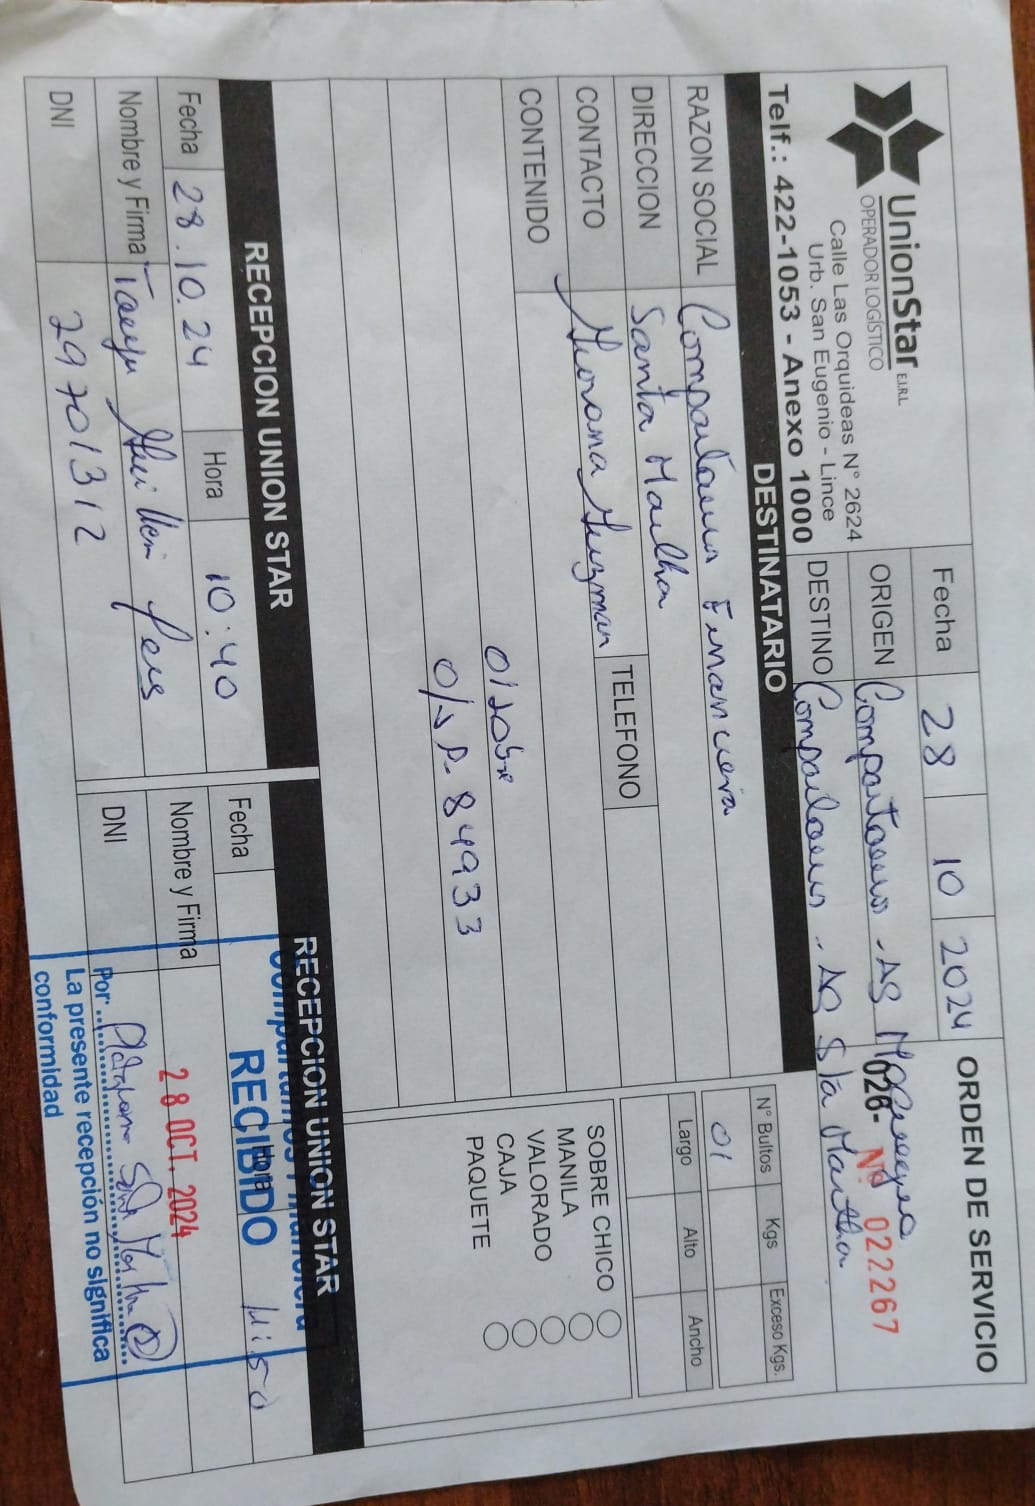 UnionStar E.I.R.L.
OPERADOR LOGÍSTICO
Calle Las Orquideas N° 2624
Urb. San Eugenio - Lince
Telf.: 422-1053 - Anexo 1000
Fecha 28 10 2024
ORIGEN Compartamos - AG
DESTINO Compartamos - AG Sta Martha
ORDEN DE SERVICIO
026- N° 022267
DESTINATARIO
RAZON SOCIAL Compartamos Financiera
DIRECCION Santa Martha
CONTACTO Guzman TELEFONO
CONTENIDO
01 sobre
O/S P. 84933
N° Bultos Kgs Exceso Kgs.
01
Largo Alto Ancho
SOBRE CHICO
MANILA
VALORADO
CAJA
PAQUETE
RECEPCION UNION STAR
Fecha 28.10.24 Hora 10:40
Nombre y Firma
DNI 29701312
RECEPCION UNION STAR
Compartamos Financiera
Fecha Hora 11:50
RECIBIDO
Nombre y Firma 28 OCT. 2024
DNI
Por: Plataforma Santa Martha
La presente recepción no significa
conformidad